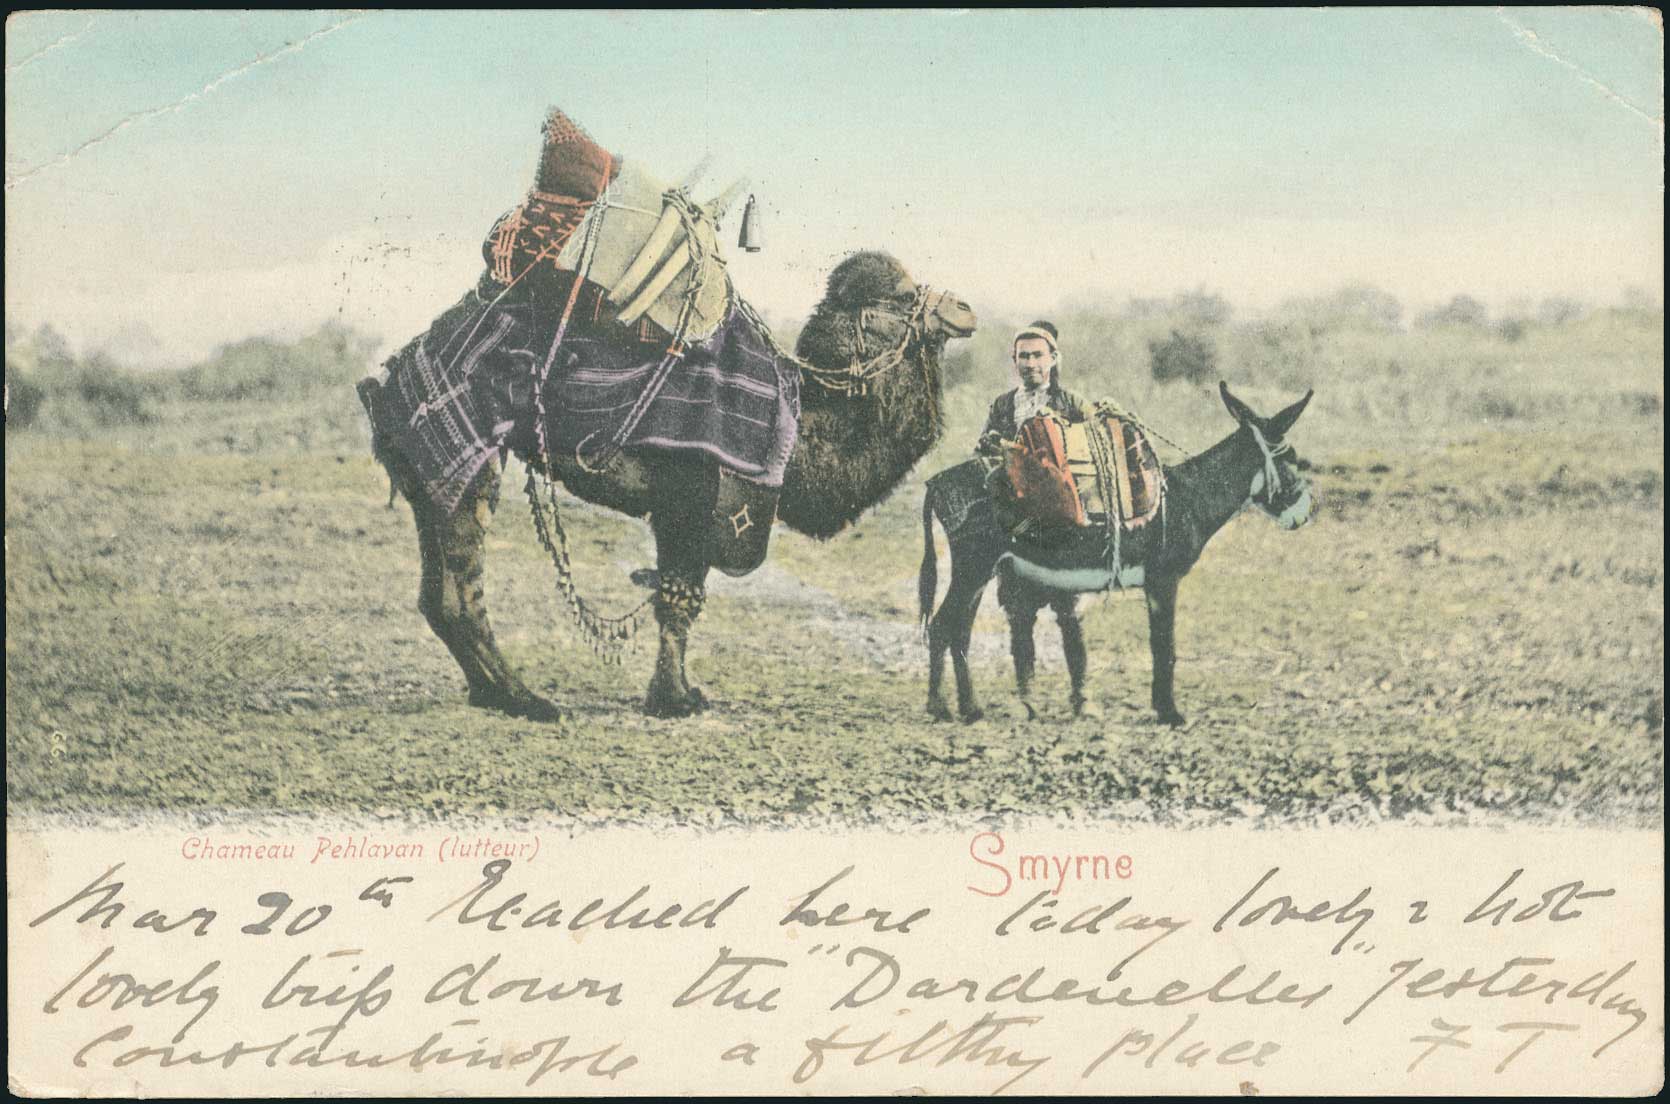 Chameau Pehlavan (lutteur)
Smyrne
Mar 20th Reached here today lovely & hot
lovely trip down the "Dardenelles" yesterday
Constantinople a filthy place F T